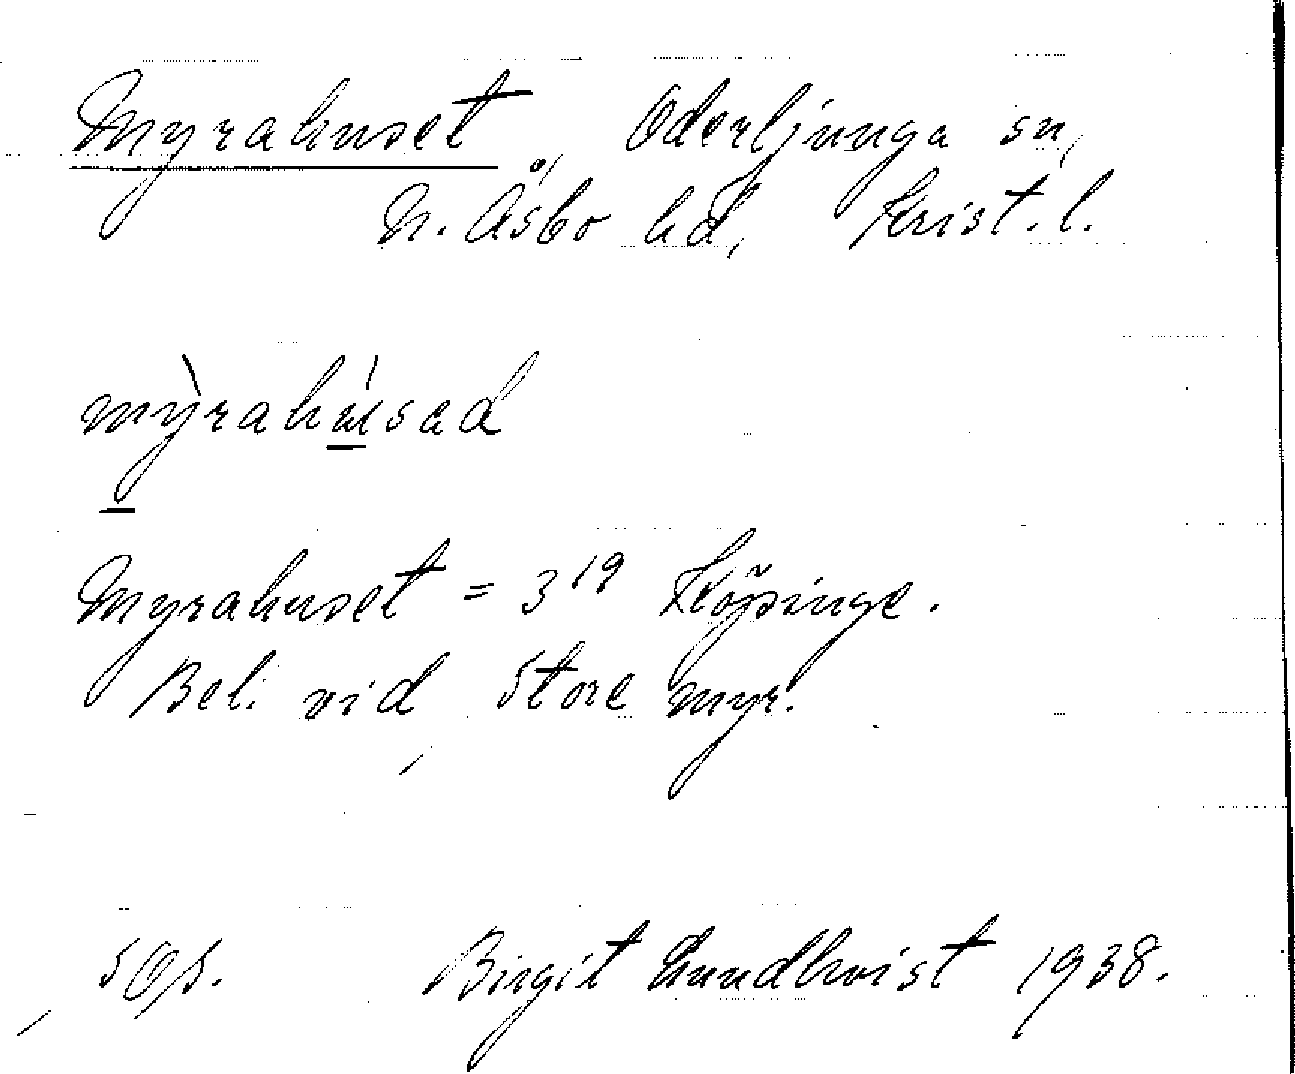 Myrahuset, Oderljunga sn,
N. Åsbo hd, Krist. l.
my̍̀rahúsad
Myrahuset = 3¹⁹ Köpinge.
Bel. vid Store myr.
Birgit Lundkvist 1938.